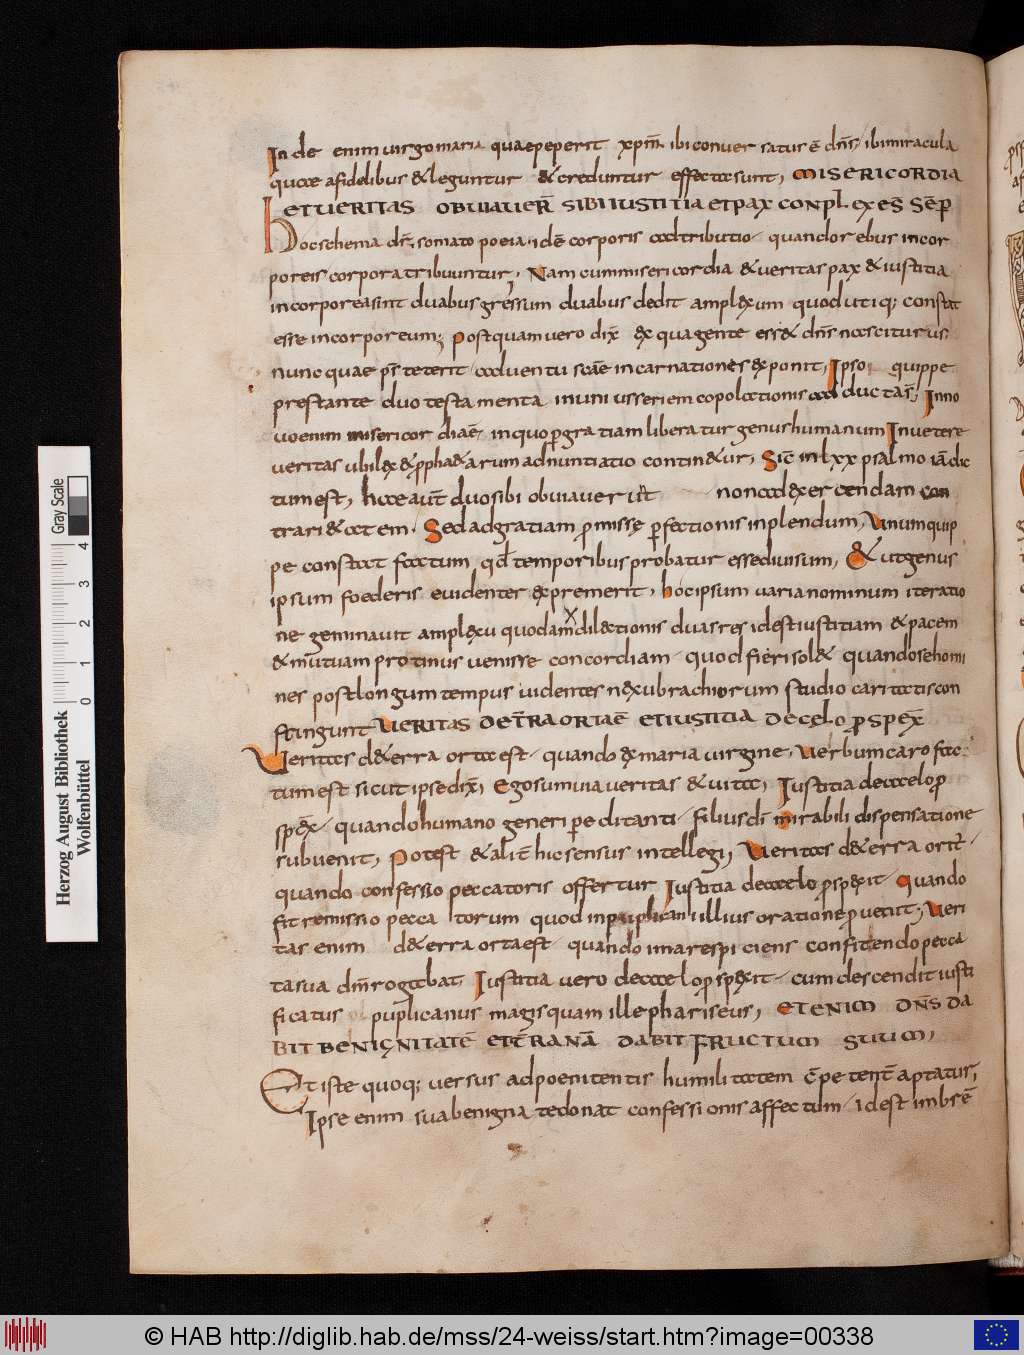 In de enim virgo maria quae peperit xpm̄ ibi conversatus ē dn̄s, ibi miracula
quae a fidelibus & leguntur & creduntur effecta sunt, MISERICORDIA
ET VERITAS OBVIAVER̄ SIBI IUSTITIA ET PAX CONPLEXE S̄ SĒP
hoc schema dr̄, somatopoeia, idē corporis adtributio quando rebus incor
poreis corpora tribuuntur, Nam cum misericordia & veritas pax & iustitia
incorporea sint duabus gressum duabus dedit amplexum quod utiq; constat
esse incorporeum; Postquam vero dix̄ ex qua gente ess& dn̄s nasciturus
nunc quae pr̄steterit adventu scāe incarnationes exponit, Ipso quippe
prestante duo testamenta in unius seriem copolationis adductas̄; Inno
vo enim misericordiae, in quo p gratiam liberatur genus humanum In vetere
veritas ubi lex & pph&arum adnuntiatio contin&ur, Sic̄ in lxx psalmo iā dic
tum est, haec aut̄ duo sibi obviaver̄ non ad exercendam con
trari&atem. Sed ad gratiam pmisse pfectionis inplendum, Unum quip
pe constat factum, qd temporibus probatur esse divisum, & ut genus
ipsum foederis evidenter expremerit, hoc ipsum varia nominum iteratio
ne geminavit amplexu quodam dilectionis duas res id est iustitiam & pacem
& mutuam protinus venisse concordiam quod fieri sol& quando se homi
nes post longum tempus videntes nexu brachiorum studio caritatis con
stringunt VERITAS DE TĒRA ORTA Ē ET IUSTITIA DE CELO PSPEX̄
Veritas d&erra orta est quando ex maria virgine, verbum caro fac
tum est sicut ipse dix̄, Ego sum via veritas & vita, Iustitia de caelo p
spex̄ quando humano generi pereditanti filius dī mirabili dispensatione
subvenit, Potest & alit̄ hic sensus intellegi, Veritas d&erra ort̄
quando confessio peccatoris offertur Iustitia de caelo pspexit Quando
fit remissio peccatorum quod in puplicani illius oratione pvenit; Veri
tas enim d&erra orta est quando in a respiciens confitendo pecca
ta sua dm̄ rogabat, Iustitia vero de caelo pspexit cum descendit iusti
ficatus puplicanus magis quam ille phariseus, ETENIM DN̄S DA
BIT BENIGNITATĒ ET TĒRA NR̄A DABIT FRUCTUM SUUM,
Et iste quoq; versus ad poenitentis humilitatem c̄petent̄ aptatur,
Ipse enim sua benigna te donat confessionis affectum id est imbrē
© HAB http://diglib.hab.de/mss/24-weiss/start.htm?image=00338
Herzog August Bibliothek
Wolfenbüttel
0 1 2 3 4
Gray Scale